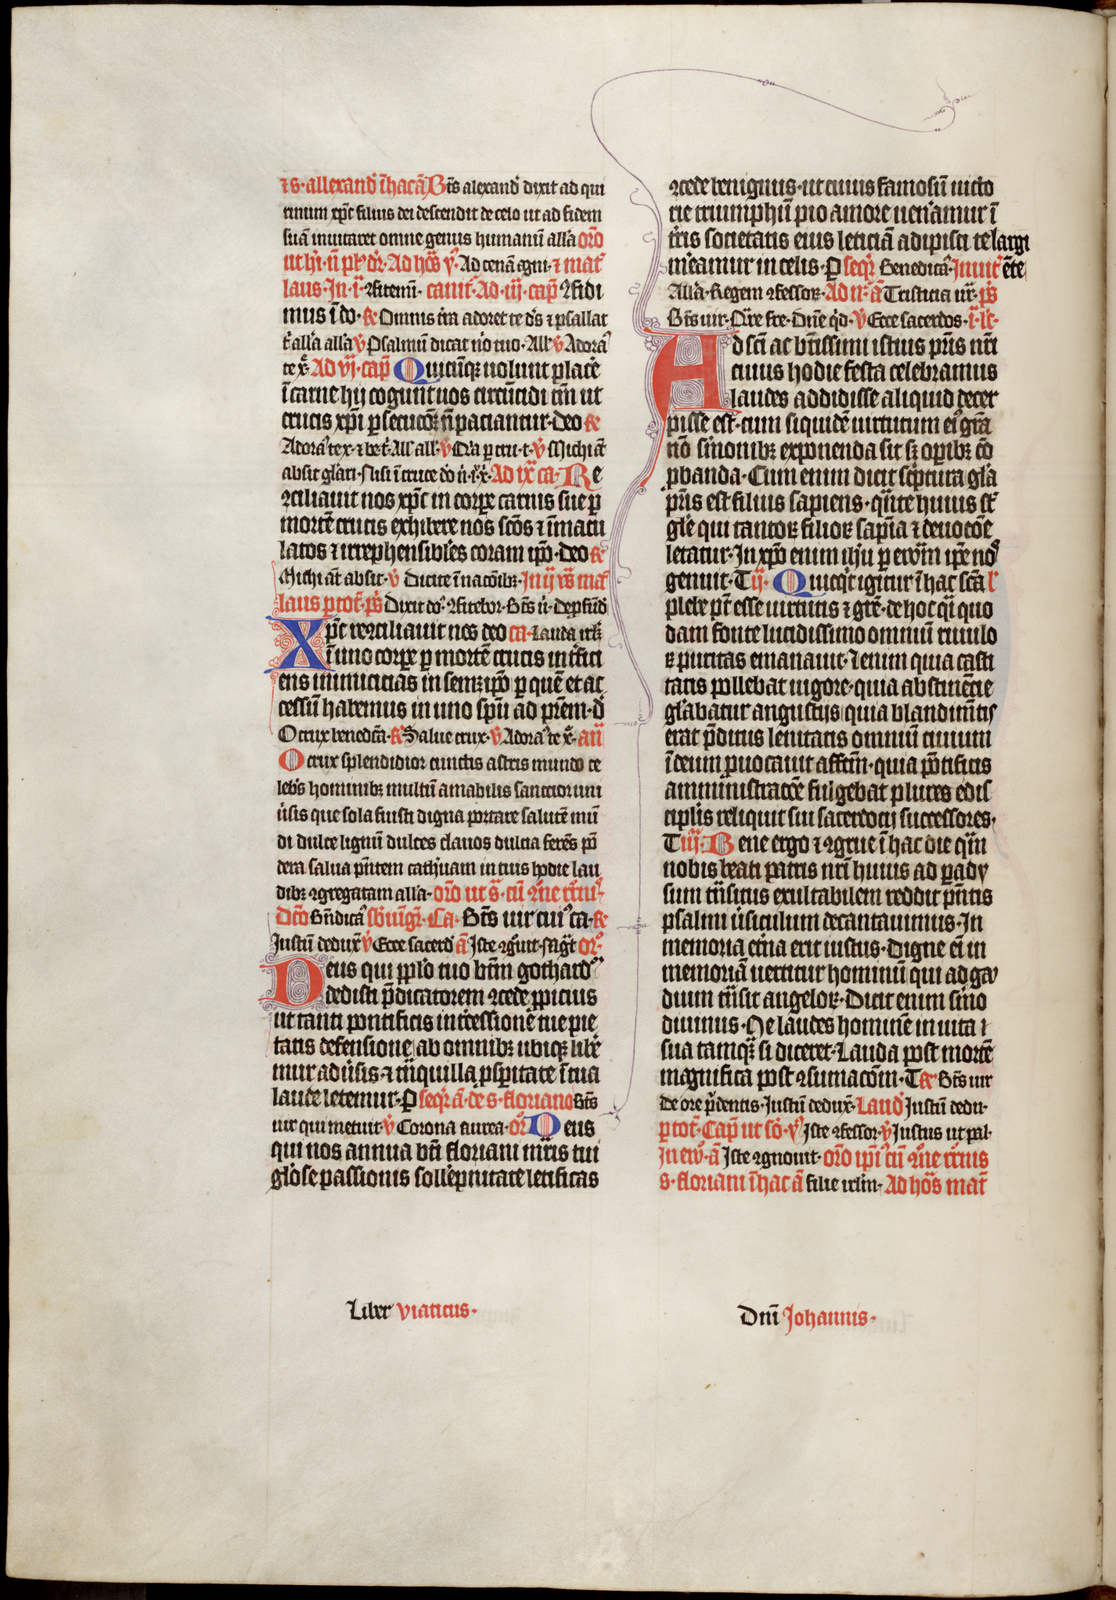 ⁊ s· allexand̾ īhac añ Bt̄s alexand̾ dixit ad qui
rinum xp̄c filius dei descendit de celo ut ad fidem
suā inuitaret omne genus humanū all̾a or̄o
Ad cenā agni· ⁊ mat̾
laus· Ad· iij· cap̄ ꝯfidi
mus ī do· ꝶ Omnis t̾ra adoret te d̄s ⁊ psallat
t̾ all̾a all̾a ℣ Psalmum dicat no̅ tuo· All̾ ℣ Adora̾
te x̄· Ad vj· cap̄ Quicūqꝫ uolunt place̾
ī carne hij cogunt uos circūcidi tm̄ ut
crucis xp̄i ꝑsecucōꝫ n̄ paciantur· deo ꝶ
absit gl̾ari· nisi ī cruce do n̄ i· x̄· Ad ix ca· Re
ꝯciliauit nos xp̄c in corꝑe carnis sue ꝑ
mortē crucis exhibere nos sc̄os ⁊ īmacu
latos ⁊ irrephensibiles coram ip̄o· deo ꝶ
Michi aūt absit· ℣ Dicite ī nac̄oibꝫ· In ij vs̄ mat̾
laus ꝑ tot̄· ps̄ Dixit do̾· ꝯfitebor· Bt̄s ū· De ꝓfūd̾
Xp̄c reꝯciliauit nos deo ca· Lauda irl̄m
ī uno corꝑe ꝑ mortē crucis int̾fici
ens inimicicias in semꝫip̄o ꝑ quē et ac
cessū habemus in uno sp̄u ad prē̄m· ꝶ
O crux benedc̄a· ꝶ Salue crux· ℣ Adora̾ te x̄· an̄
O crux splendidior cunctis astris mundo ce
lebs̾ hominibꝫ multū amabilis sanctior uni
u̾sis que sola fuisti digna portare salutē mū
di dulce lignū dulces clauos dulcia ferēs pō
dera salua pn̄tem cath̾uam in tuis hodie lau
dibꝫ ꝯgregatam all̾a·
Bt̄s uir
Justū deduxꝫ ℣ Ecce sacerd̾ a̅ Iste ꝯg̾uit· mag̾t or̄o
Deus qui ppl̾o tuo btm̄ gothard̾
dedisti p̄dicatorem ꝯcede ꝓpicius
ut tanti pontificis int̾cessionē tue pie
tatis defensione ab omnibꝫ ubiqꝫ libe
mur adu̾sis ⁊ t̾nquilla ꝓsꝑitate ī tua
laude letemur· ꝑ seqr̄ a̅· de s· floriano Bt̄s
uir qui metuit ℣ Corona aurea· or̄ Deus
qui nos annua bt̄i floriani mr̄is tui
gl̾ose passionis sollēpnitate letificas
ꝯcede benignus· ut cuius famosū uicto
rie triumphū pio amore uen̾amur ī
t̾ris societatis eius leticiā adipisci te largi
m̾eamur in celis· ꝑ seqr̄ Benedica̾· Inuit̄
Alla· Regem ꝯfessoꝝ· Ad n̄· a̅ Tristicia ur̄· ps̄
Bt̄s uir· Qr̄e fre· Dn̄e q̾d· ℣ Ecce sacerdos· i· lc̄·
Ad sc̄i ac bt̄issimi istius pr̄is nr̄i
cuius hodie festa celebramus
laudes addidisse aliquid decer
pisse est· cum siquidē uirtutum ei̾ gr̄a
nō s̄monibꝫ exponenda sit sꝫ oꝑibꝫ cō
ꝓbanda· Cum enim dicit sc̾ptura gl̄a
pr̄is est filius sapiens· q̄nte huius s̄t
gl̄e qui tantoꝝ filioꝝ sap̄ia ⁊ deuoc̄oe
letatur· In xp̄o enim ih̄u ꝑ ewm̄ ip̄e no̾
genuit· T ij· Quicq̾t igitur ī hac sc̄a
plebe pt̄ esse uirtutis ⁊ gr̄e· de hoc q̾i quo
dam fonte lucidissimo omniū riuulo
ꝝ puritas emanauit· Etenim quia casti
tatis pollebat uigore· quia abstinēcie
gl̾abatur angustijs quia blandimēt̾
erat p̄ditus lenitatis omniū ciuium
ī deum ꝓuocauit affc̄m· quia pōtificis
amministrac̄oe fulgebat plures e dis
cipl̾is reliquit sui sacerdocij successores·
T iij· Bene ergo ⁊ ꝯgrue ī hac die q̾m
nobis beati patris nr̄i huius ad ꝑady
sum t̾nsitus exultabilem reddit p̄ntis
psalmi u̾siculum decantauimus· In
memoria et̾na erit iustus· Digne eī in
memoriā uertitur hominū qui ad ga
dium t̾nsit angeloꝝ· Dicit enim s̾mo
diuinus· Ne laudes hominē in uita
sua tamqꝫ si diceret· Lauda post mortē
magnifica post ꝯsumac̄om· T ꝶ Bt̄s uir
de ore p̾dentis· Justū deduxꝫ· Laud̾ Justū dedu·
ꝑ tot̄· Cap̄ ut s̾o· ℣ Iste ꝯfessor· ℣ Justus ut pal·
In ew̄· a̅ Iste ꝯgnouit· or̄o ip̄i
s· floriani ī hac a̅ filie irl̄m· Ad ho̾s mat̄
Liber viaticus·
Dn̄i Johannis·